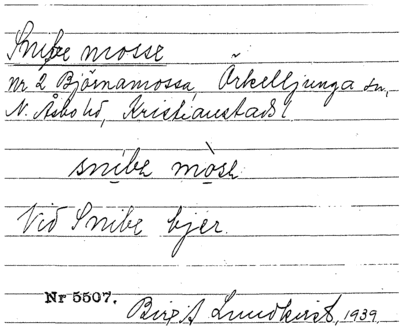 Snibe mosse
nr 2 Björnamossa, Örkelljunga sn,
N. Åsbo hd, Kristianstads l
snibe mòse
Vid Snibe bjer.
Nr 5507.
Birgit Lundkvist, 1939